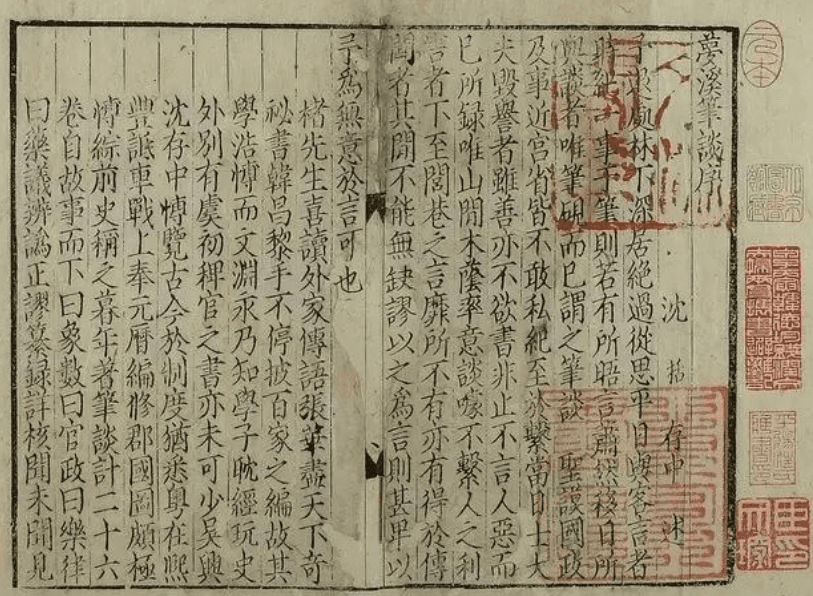 元本
夢溪筆談序
沈括存中述
予退處林下深居絶過從思平日與客言者
時紀一事于筆則若有所晤言蕭然移日所
與談者唯筆硯而已謂之筆談 聖謨國政
及事近宮省皆不敢私紀至於繫當日士大
夫毀譽者雖善亦不欲書非止不言人惡而
已所録唯山閒木蔭率意談噱不繫人之利
害者下至閭巷之言靡所不有亦有得於傳
聞者其閒不能無缺謬以之爲言則甚卑以
予爲無意於言可也
褚先生喜讀外家傳語張華盡天下奇
祕書韓昌黎手不停披百家之編故其
學浩愽而文淵永乃知學子耽經玩史
外別有虞初稗官之書亦未可少吳興
沈存中愽覽古今於制度猶悉粵在熈
豐詆車戰上奉元曆編修郡國圖頗極
愽綜前史稱之暮年著筆談計二十六
卷自故事而下曰象數曰官政曰樂律
曰藥議辨譌正謬纂録詳核聞未聞見